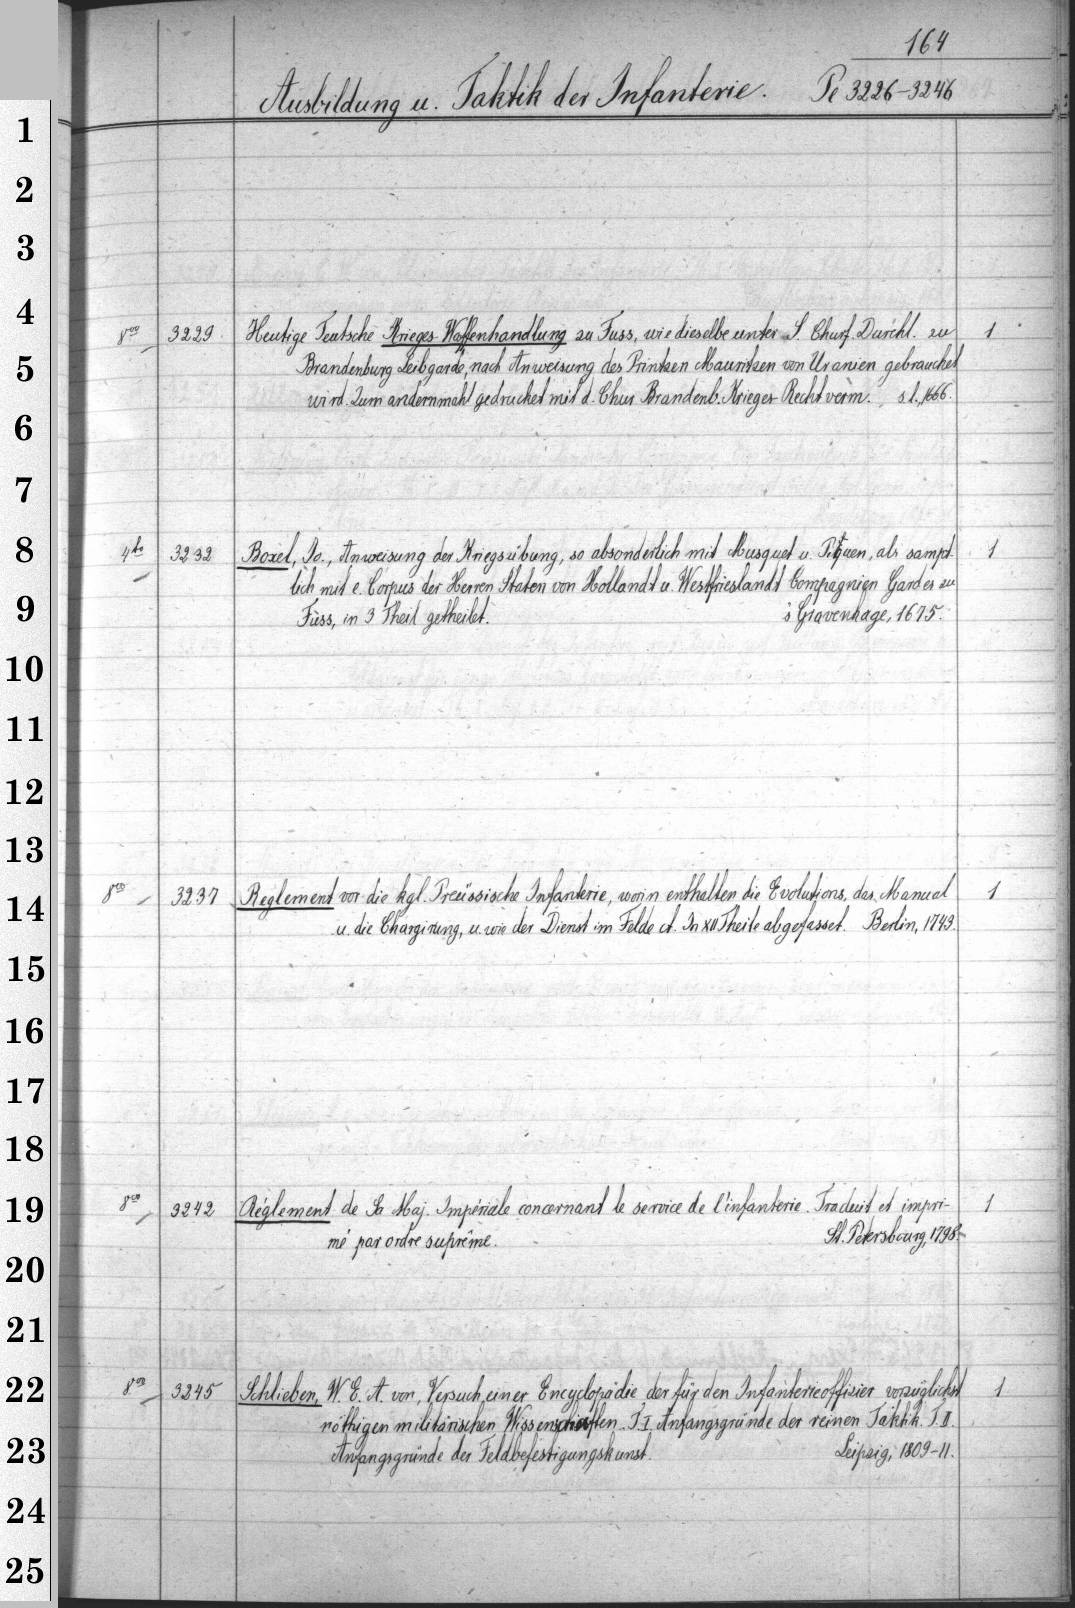 164
Ausbildung u. Taktik der Infanterie. Pe 3226-3246
1
2
3
4
8vo 3229 Heutige Teutsche Krieges-Waffenhandlung zu Fuss, wie dieselbe unter S. Churf. Durchl. zu 1
5
Brandenburg Leibgarde, nach Anweisung des Printzen Mauritzen von Uranien gebrauchet
wird. Zum andernmahl gedrucket mit d. Chur Brandenb. Krieges-Recht verm. s l., 1666.
6
7
8
4to 3232 Boxel, Jo., Anweisung der Kriegsübung, so absonderlich mit Musquet u. Piquen, als sampt- 1
lich mit e. Corpus der Herren Staten von Hollandt u. Westfrieslandt Compagnien Gardes zu
9
Fuss, in 3 Theil getheilet. s'Gravenhage, 1675.
10
11
12
13
14
8vo 3237 Reglement vor die kgl. Preüssische Infanterie, worin enthalten die Evolutions, das Manual 1
u. die Chargirung, u. wie der Dienst im Felde ct. In XII Theile abgefasset. Berlin, 1743.
15
16
17
18
19
8vo 3242 Réglement de Sa Maj. Impériale concernant le service de l'infanterie. Traduit et impri- 1
mé par ordre suprême. St. Petersbourg, 1798.
20
21
22
8vo 3245 Schlieben, W. E. A. von, Versuch einer Encyclopädie der für den Infanterieoffizier vorzüglichst 1
nöthigen militärischen Wissenschaften. T. I Anfangsgründe der reinen Taktik. T. II.
23
Anfangsgründe der Feldbefestigungskunst. Leipzig, 1809-11.
24
25